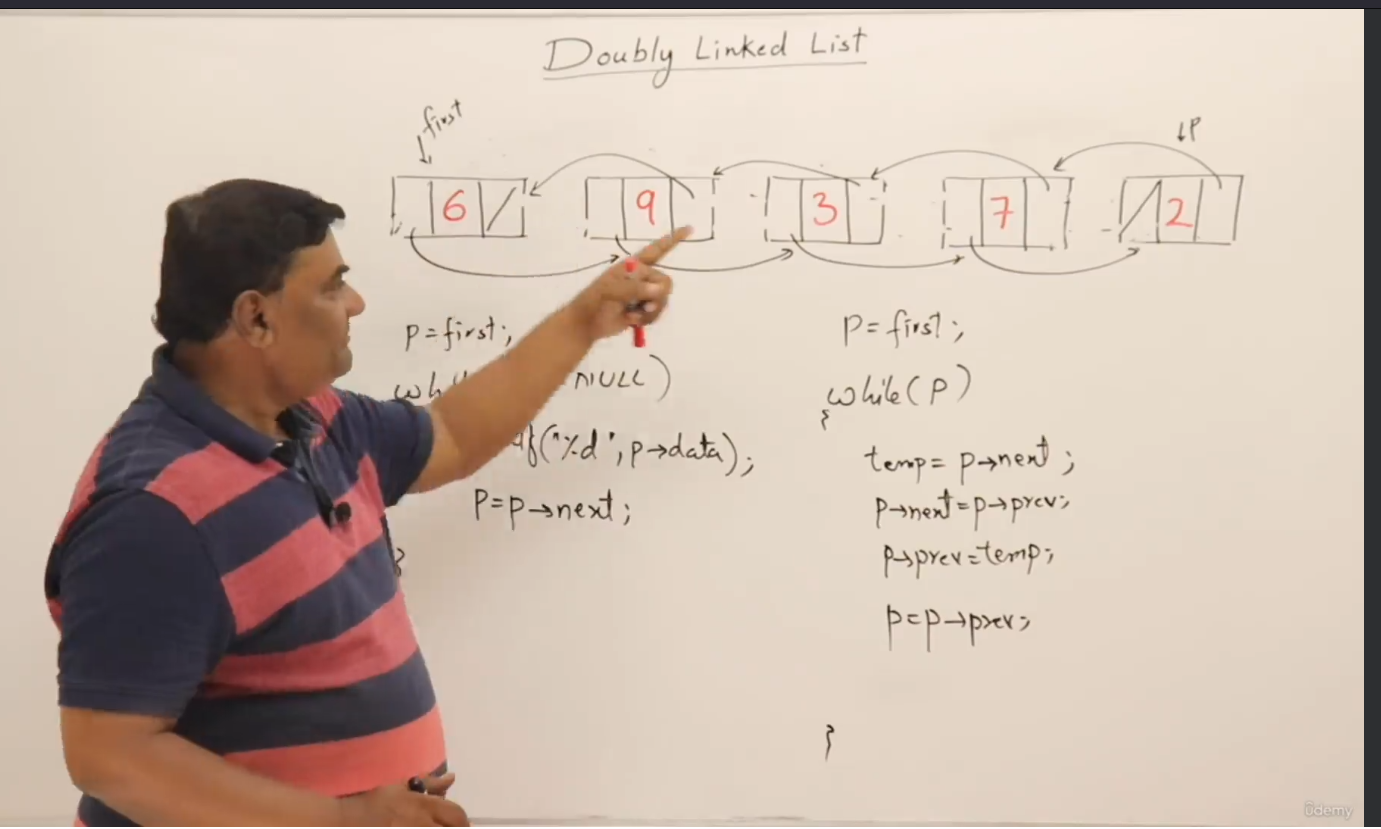 Doubly Linked List
first
P
6 9 3 7 2
p=first;
NULL)
("%d", p→data);
P=p→next;
}
p=first;
while(p)
{
temp= p→next;
p→next=p→prev;
p→prev=temp;
p=p→prev;
}
ûdemy